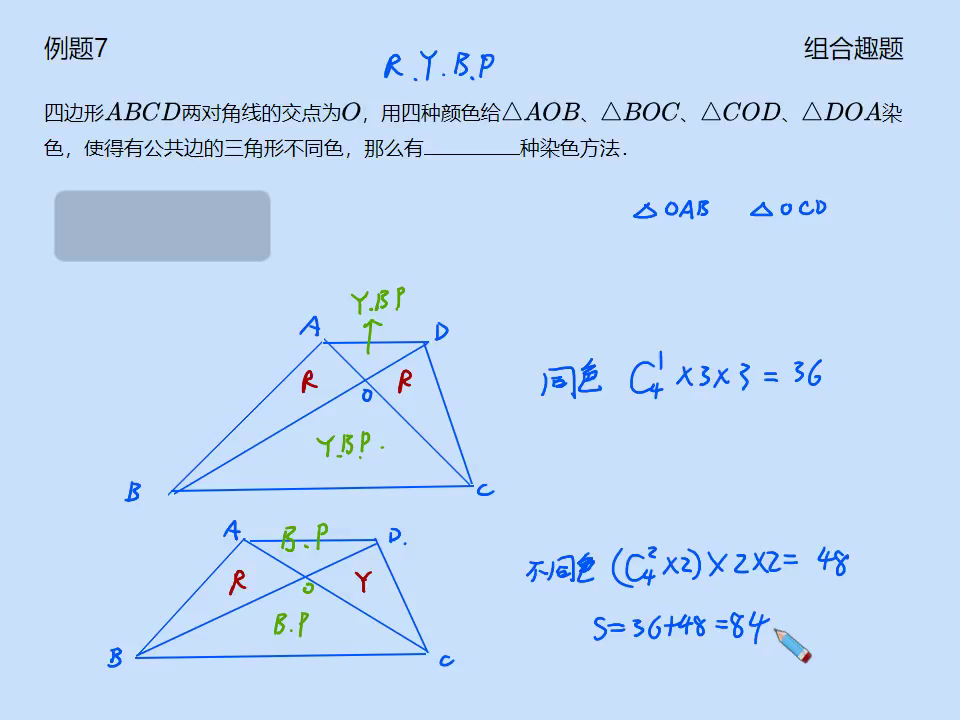 例题7
组合趣题
R.Y.B.P
四边形ABCD两对角线的交点为O，用四种颜色给△AOB、△BOC、△COD、△DOA染
色，使得有公共边的三角形不同色，那么有________种染色方法．
△OAB △OCD
Y.BP
A D
R R
O
Y.B.P.
B C
同色 C₄¹×3×3=36
A B.P D.
R Y
O
B.P
B C
不同色 (C₄²×2)×2×2=48
S=36+48=84